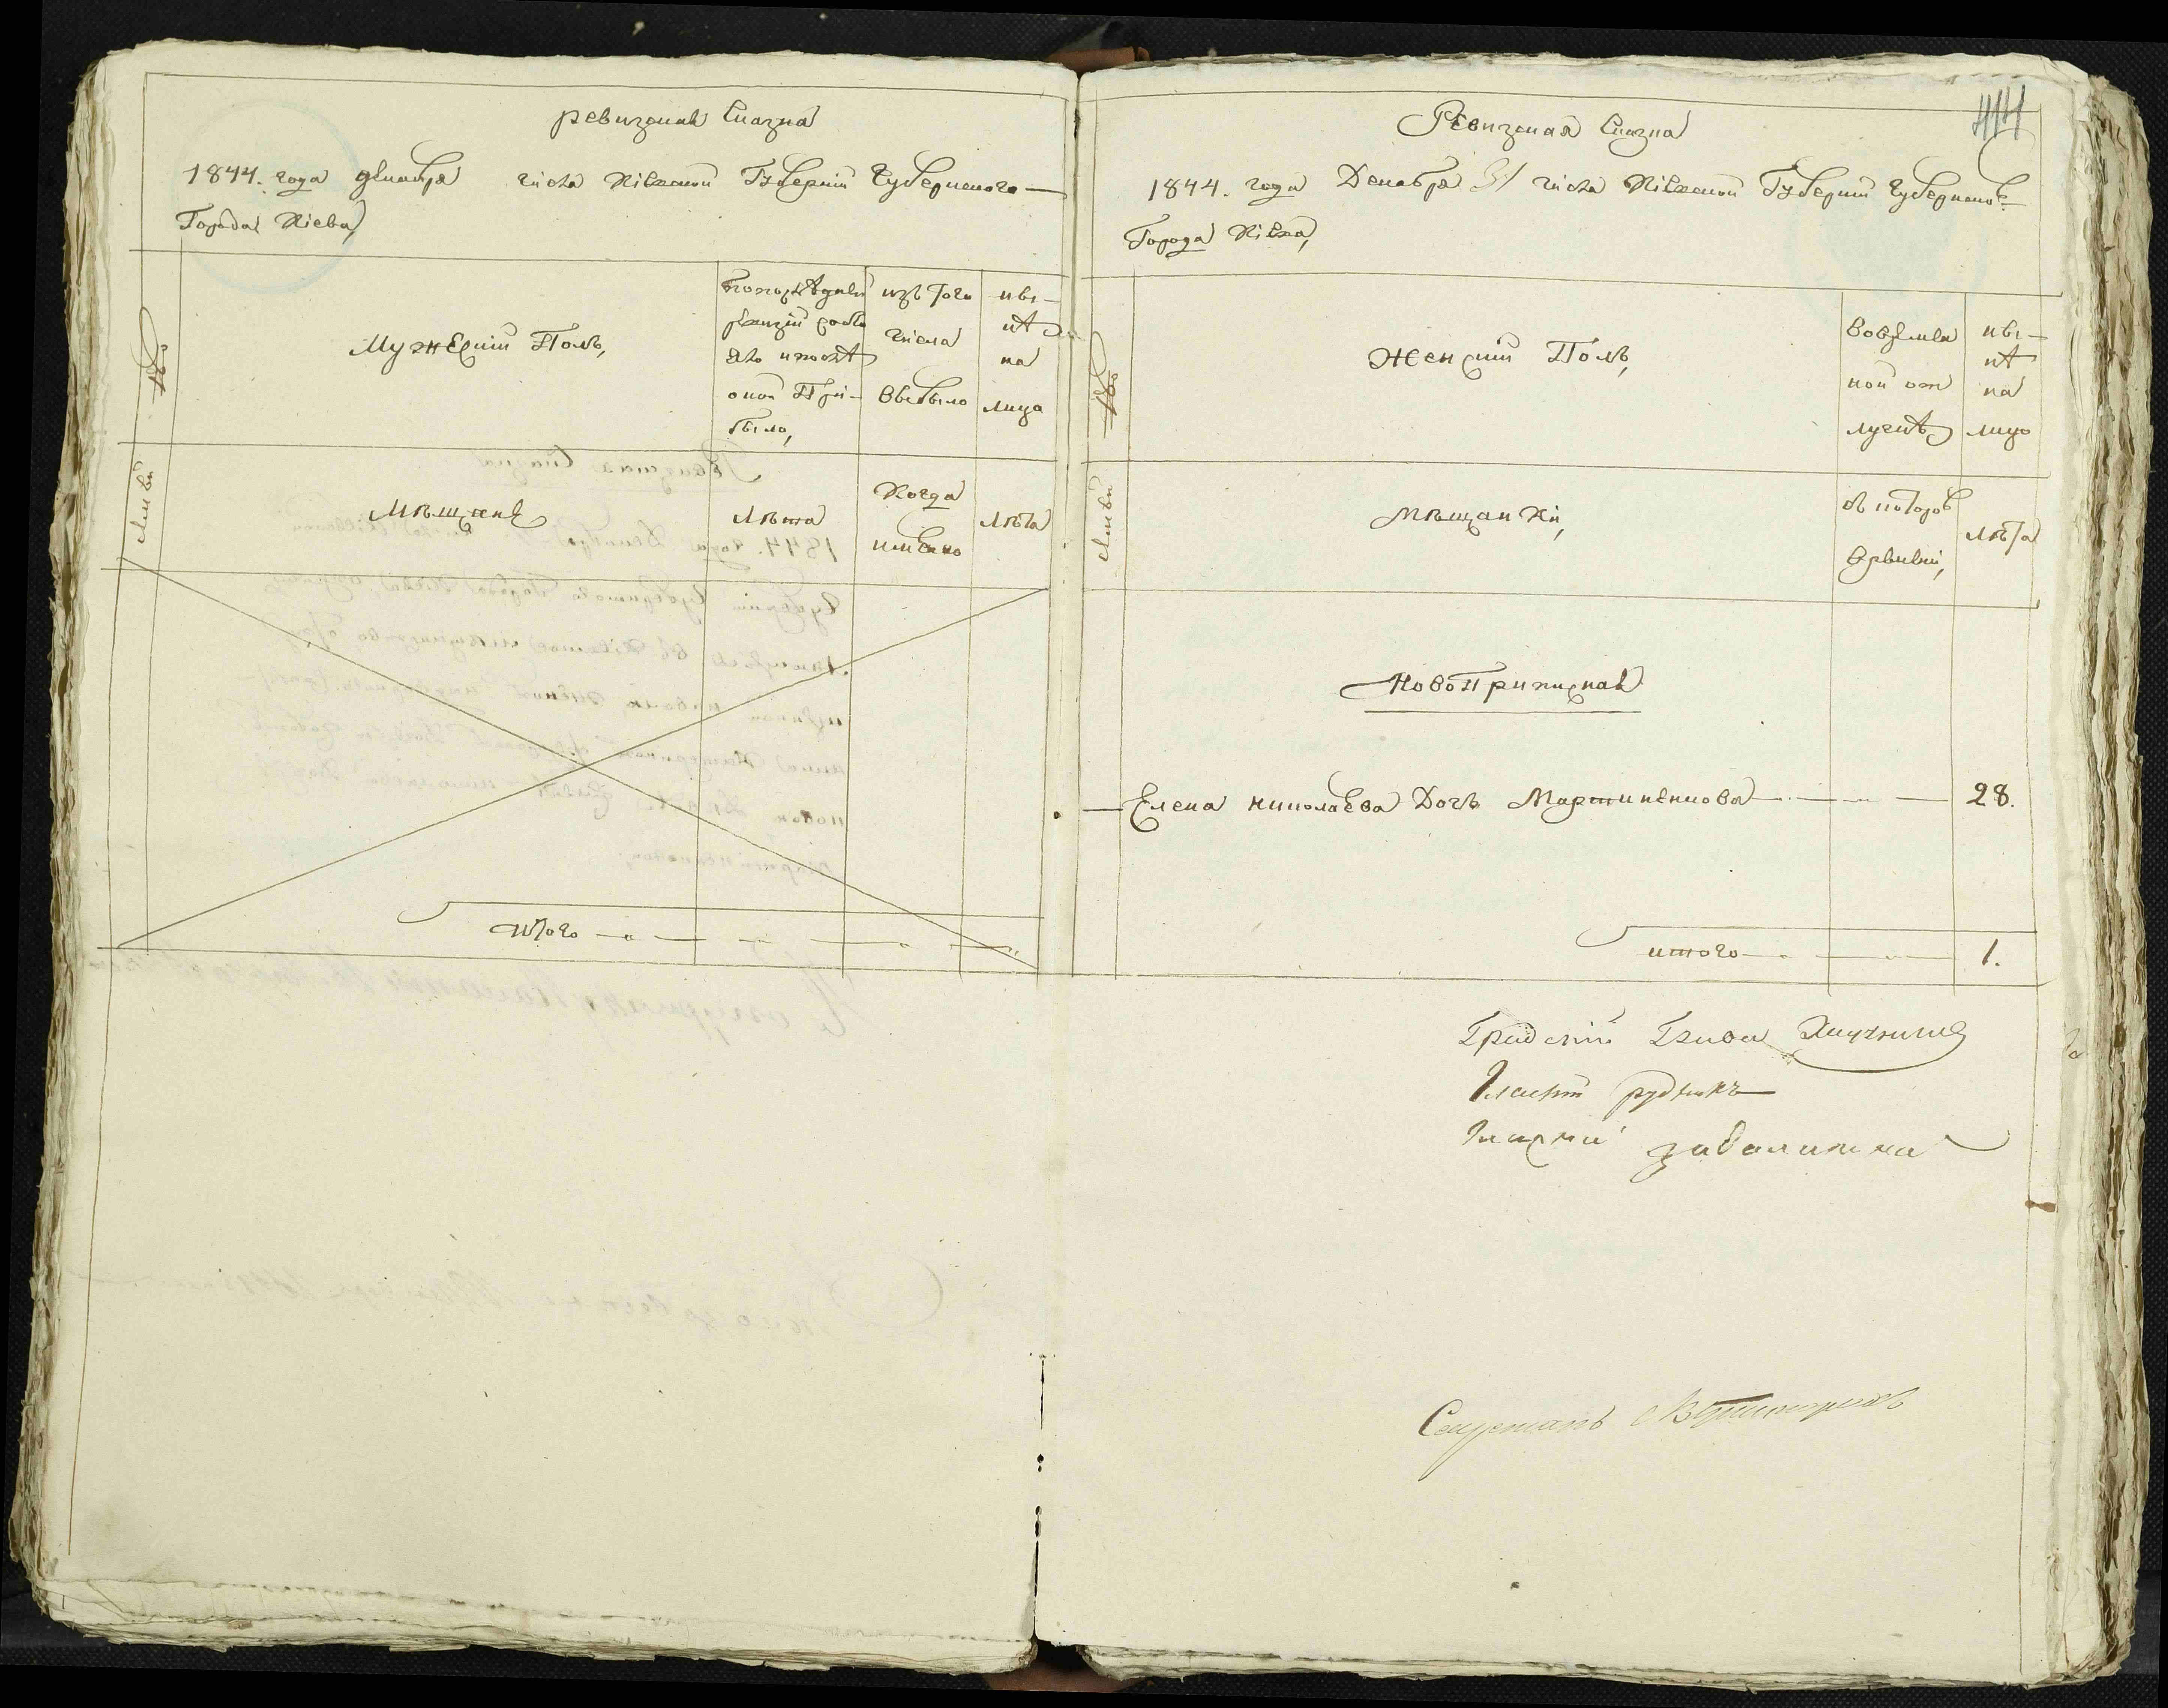 ревизская Сказка
1844. года декабря числа Кіевской Губерніи Губернскаго
Города Кіева,
№
Мужескій Полъ,
по последней
ревизіи состо
яло и после
оной При-
было,
изъ того
числа
выбыло
ны-
не
на
лицо
семьи
Мѣщане
Лѣта
Когда
именно
Лѣта
итого
444
Ревизская Сказка
1844. года Декабря 31 числа Кіевской Губерніи Губернскаго
Города Кіева,
№
Женскій Полъ,
Во времен
ной от
лучкѣ
ны-
не
на
лицо
семьи
Мѣщанки,
съ котораго
времени,
Лѣта
Новоприписная
Елена Николаева Дочь Мартиненкова 28.
итого 1.
Градскій Глава
Гласный рудникъ
Гласный
Секретарь